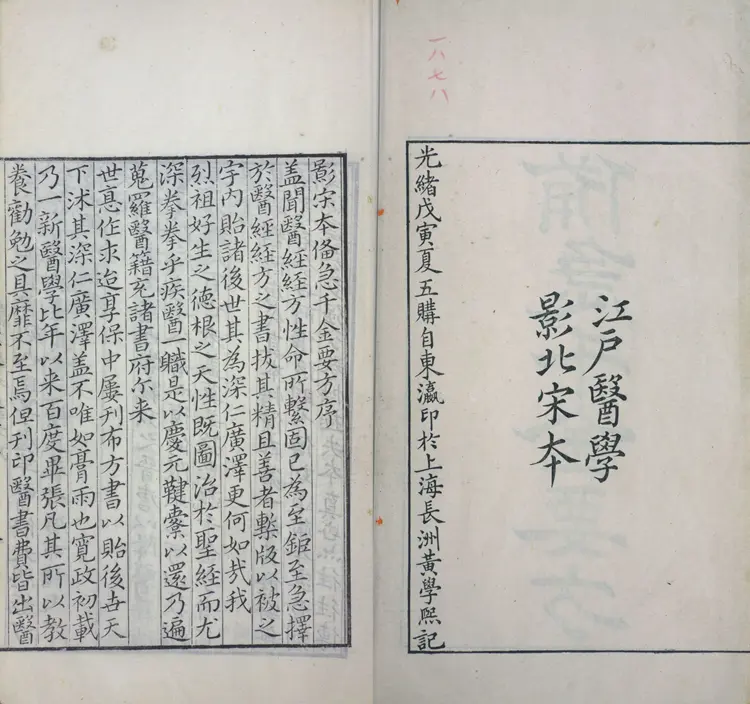 一八七八
江戸醫學
影北宋本
光緒戊寅夏五購自東瀛印於上海長洲黃學熙記
影宋本備急千金要方序
蓋聞醫經經方性命所繫固已為至鉅至急擇
於醫經經方之書拔其精且善者槧版以被之
宇內貽諸後世其為深仁廣澤更何如哉我
烈祖好生之德根之天性既圖治於聖經而尤
深拳拳乎疾醫一職是以慶元鞬櫜以還乃遍
蒐羅醫籍充諸書府尒來
世悳作求迨享保中屢刊布方書以貽後世天
下沐其深仁廣澤蓋不唯如膏雨也寬政初載
乃一新醫學比年以来百度畢張凡其所以教
養勸勉之具靡不至焉但刊印醫書費皆出醫